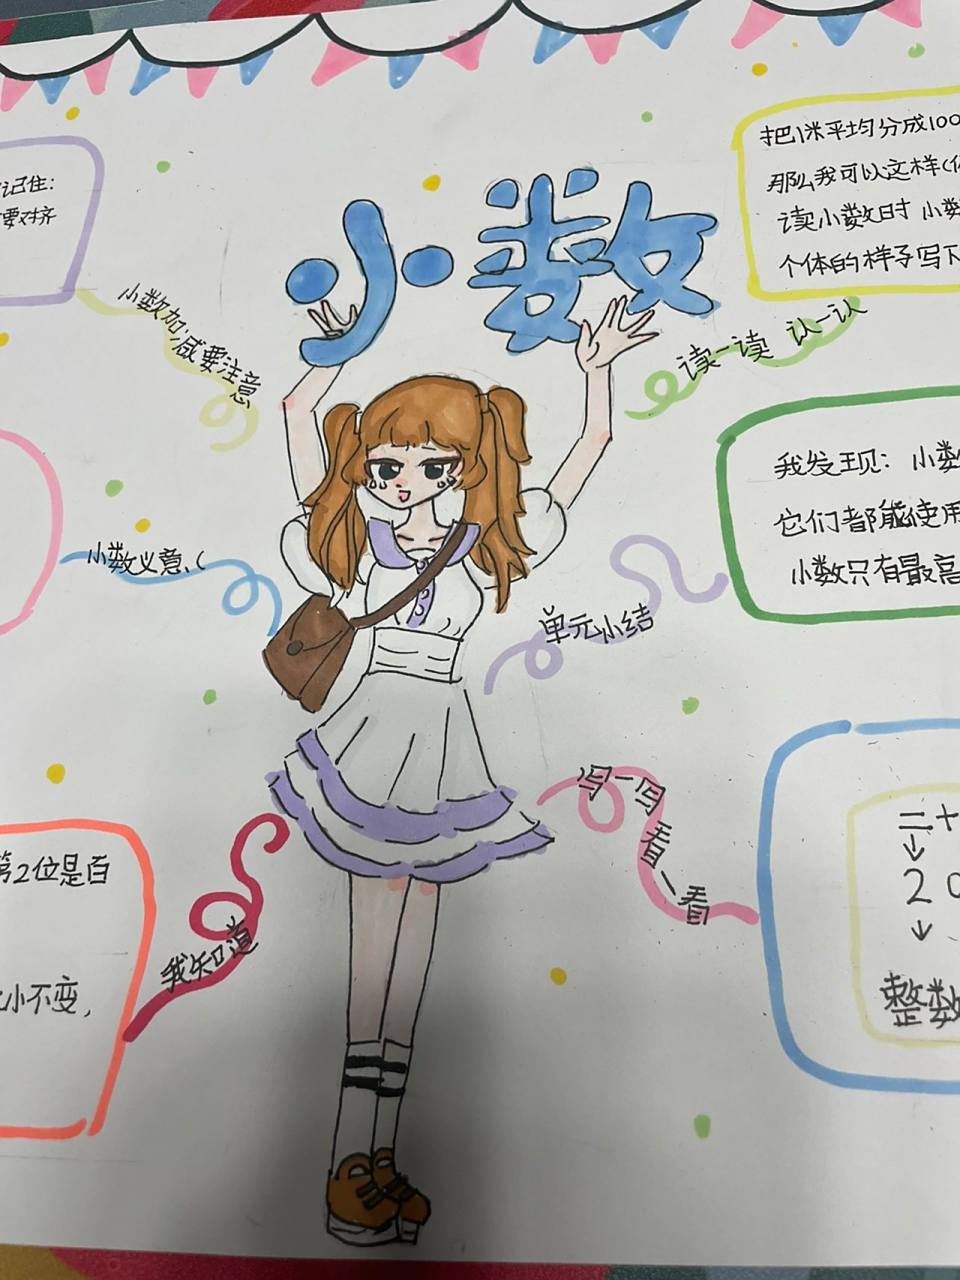 小数
记住:
要对齐
小数加减要注意
小数义意、(
第2位是百
小不变,
我知道
把1米平均分成100
那么我可以这样(
读小数时 小数
个体的样子写下
读一读 认一认
我发现: 小数
它们都能使用
小数只有最高
单元小结
写一写
看一看
二十
↓
20
↓
整数